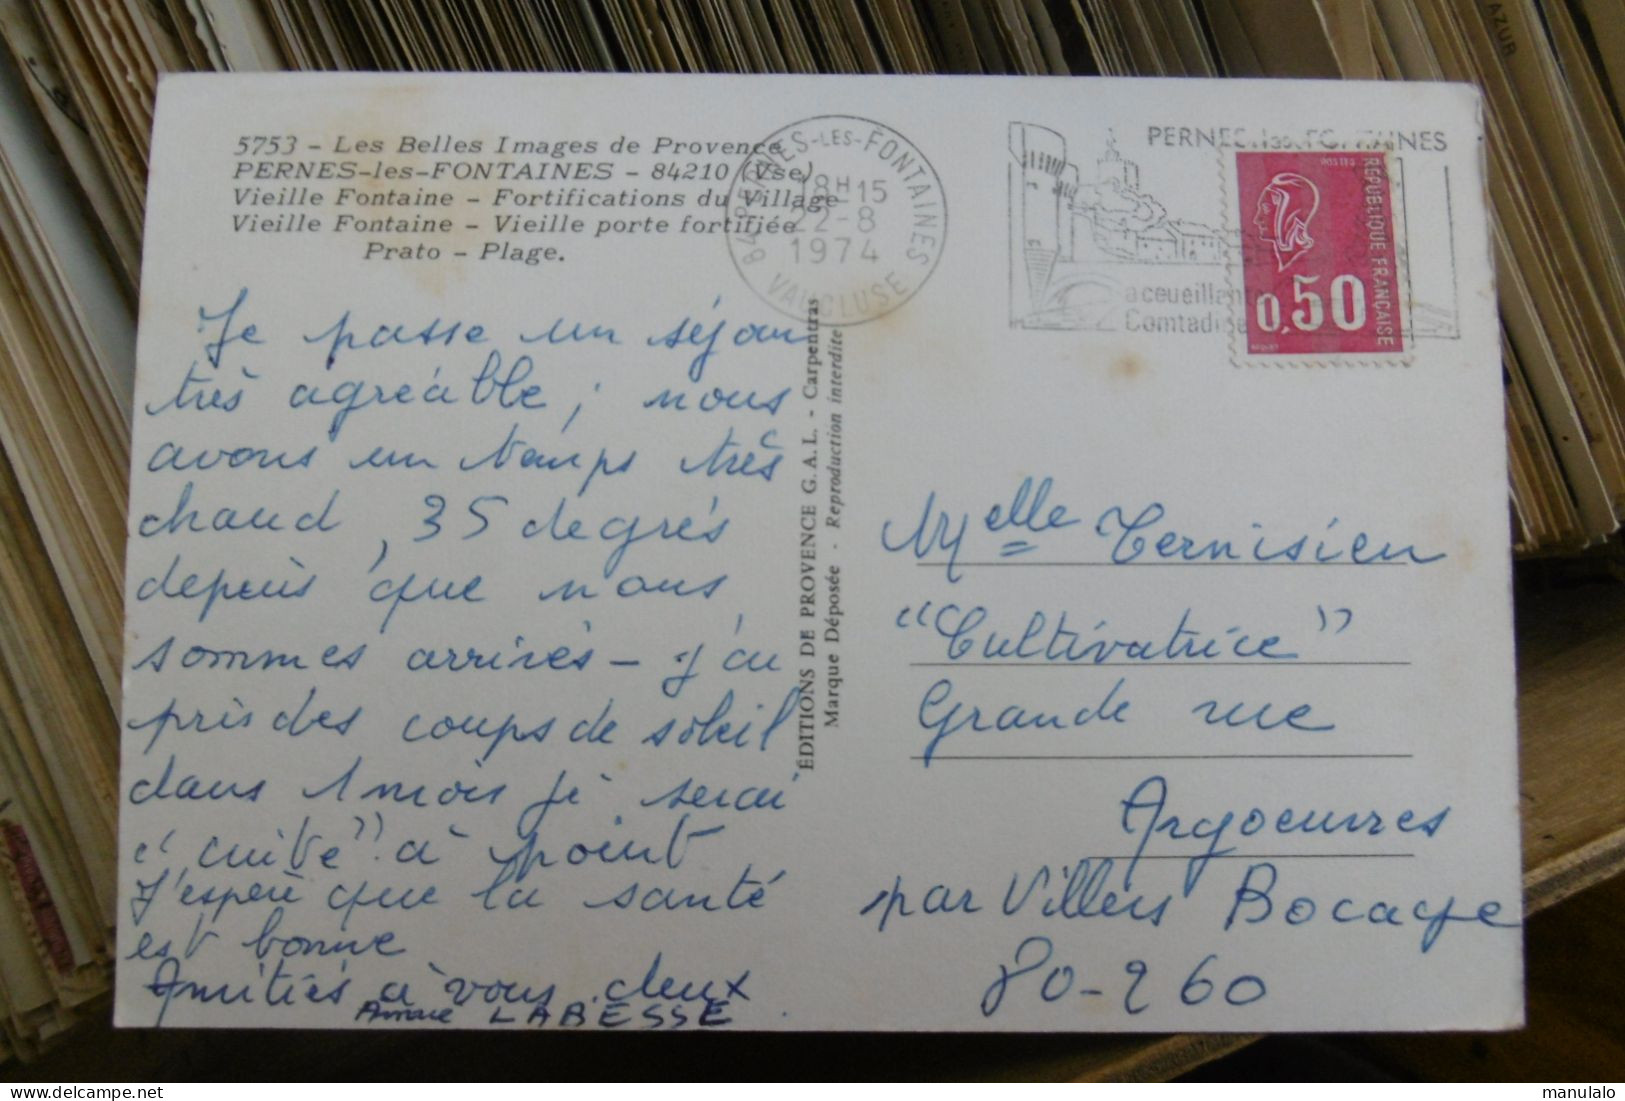 5753 - Les Belles Images de Provence
PERNES-les-FONTAINES - 84210 (Vse)
Vieille Fontaine - Fortifications du Village
Vieille Fontaine - Vieille porte fortifiée
Prato - Plage.
84 PERNES-LES-FONTAINES
18H15
22-8
1974
VAUCLUSE
PERNES les FONTAINES
accueillante
Comtadine
POSTES
REPUBLIQUE FRANÇAISE
0,50
Je passe un séjour
très agréable ; nous
avons un temps très
chaud, 35 degrés
depuis que nous
sommes arrivés - j'ai
pris des coups de soleil
dans 1 mois je serai
"cuite" à point
J'espère que la santé
est bonne
Amitiés à vous deux
LABESSE
ÉDITIONS DE PROVENCE G. A. L. - Carpentras
Marque Déposée - Reproduction interdite
Melle Ternisien
"Cultivatrice"
Grande rue
Argoeuvres
par Villers Bocage
80-260
AZUR
manulalo